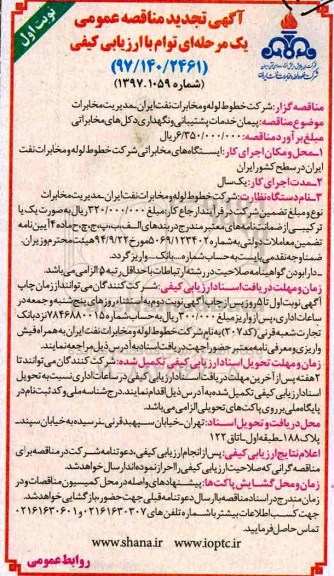 نوبت اول
آگهی تجدید مناقصه عمومی
یک مرحله‌ای توام با ارزیابی کیفی
(۹۷/۱۴۰/۲۴۶۱)
(شماره ۱۳۹۷.۱۰۵۹)
مناقصه گزار: شرکت خطوط لوله و مخابرات نفت ایران-مدیریت مخابرات
موضوع مناقصه: پیمان خدمات پشتیبانی و نگهداری دکل های مخابراتی
مبلغ برآورد مناقصه: ۶/۳۵۰/۰۰۰/۰۰۰ ریال
۱-محل و مکان اجرای کار: ایستگاه‌های مخابراتی شرکت خطوط لوله و مخابرات نفت
ایران در سطح کشور ایران
۲-مدت اجرای کار: یک سال
۳-نام دستگاه نظارت: شرکت خطوط لوله و مخابرات نفت ایران-مدیریت مخابرات
نوع و مبلغ تضمین شرکت در فرآیند ارجاع کار: مبلغ ۳۲۰/۰۰۰/۰۰۰ ریال به صورت یک یا
ترکیبی از ضمانت نامه‌های معتبر مندرج در بندهای الف، ب، پ، ج، چ، ح ماده ۴ آیین نامه
تضمین معاملات دولتی به شماره ۱۲۳۴۰۲/ت۵۰۶۵۹ه مورخ ۹۴/۹/۲۲ هیئت محترم وزیران.
ضمنا وجه نقد می بایست به حساب شماره ... واریز گردد.
-دارا بودن گواهینامه صلاحیت در رشته ارتباطات با حداقل رتبه ۵ الزامی می باشد.
زمان و مهلت دریافت اسناد ارزیابی کیفی: شرکت کنندگان می توانند از زمان چاپ
آگهی نوبت اول تا ۵ روز پس از چاپ آگهی نوبت دوم به استثناء روزهای پنج شنبه و جمعه در
ساعات اداری، پس از واریز مبلغ ۳۰۰/۰۰۰ ریال به حساب شماره ۷۸۴۶۸۸۰۰۱۵ نزد بانک
تجارت شعبه قرنی (کد ۲۰۷) به نام شرکت خطوط لوله و مخابرات نفت ایران به همراه فیش
واریزی و معرفی نامه معتبر حضور جهت دریافت اسناد به آدرس ذیل مراجعه نمایند.
زمان و مهلت تحویل اسناد ارزیابی کیفی تکمیل شده: شرکت کنندگان می توانند تا
۲ هفته پس از آخرین مهلت دریافت اسناد ارزیابی کیفی در ساعات اداری نسبت به تحویل
اسناد ارزیابی کیفی تکمیل شده به آدرس ذیل اقدام نمایند. درج شناسه ملی و کد ثبت نام در
پایگاه ملی بر روی پاکت های تحویلی الزامی می باشد.
محل دریافت و تحویل اسناد: تهران-خیابان سپهبد قرنی-نرسیده به خیابان سپند-
پلاک ۱۸۸-طبقه اول-اتاق ۱۲۲
اعلام نتایج ارزیابی کیفی: پس از انجام ارزیابی کیفی، دعوتنامه شرکت در مناقصه برای
مناقصه گرانی که صلاحیت ارزیابی کیفی را احراز نموده اند ارسال خواهد شد.
زمان و محل گشایش پاکت ها: پیشنهادهای واصله در محل کمیسیون مناقصات و در
زمان مندرج در اسناد مناقصه با ارسال دعوتنامه قبلی جهت حضور، بازگشایی خواهد شد.
جهت کسب اطلاعات بیشتر با شماره تلفن های ۰۲۱۶۱۶۳۰۳۰۷ و ۰۲۱۶۱۶۳۰۶۰۱
تماس حاصل فرمایید.
www.shana.ir www.ioptc.ir
روابط عمومی